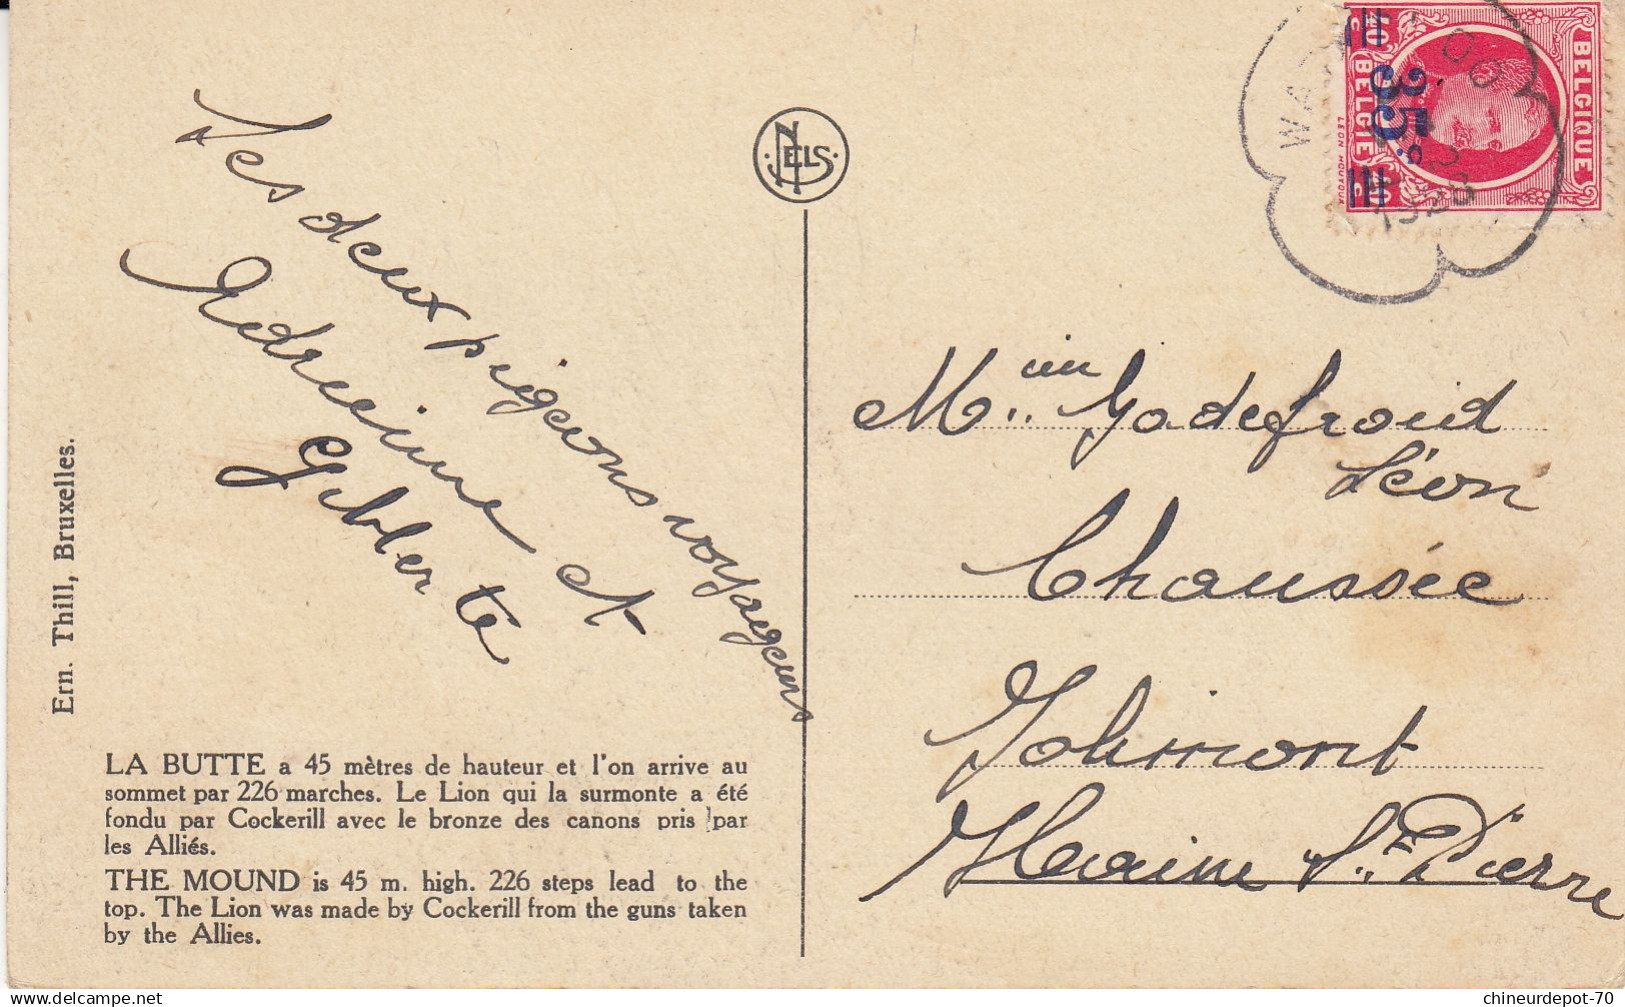 Les deux pigeons voyageurs
Adrienne et
Gilberte
Ern. Thill, Bruxelles.
LA BUTTE a 45 mètres de hauteur et l'on arrive au
sommet par 226 marches. Le Lion qui la surmonte a été
fondu par Cockerill avec le bronze des canons pris par
les Alliés.
THE MOUND is 45 m. high. 226 steps lead to the
top. The Lion was made by Cockerill from the guns taken
by the Allies.
NELS
BELGIQUE
BELGIE
35c
1928
Godefroid
Léon
Chaussée
Jolimont
Haine St. Pierre
chineurdepot-70